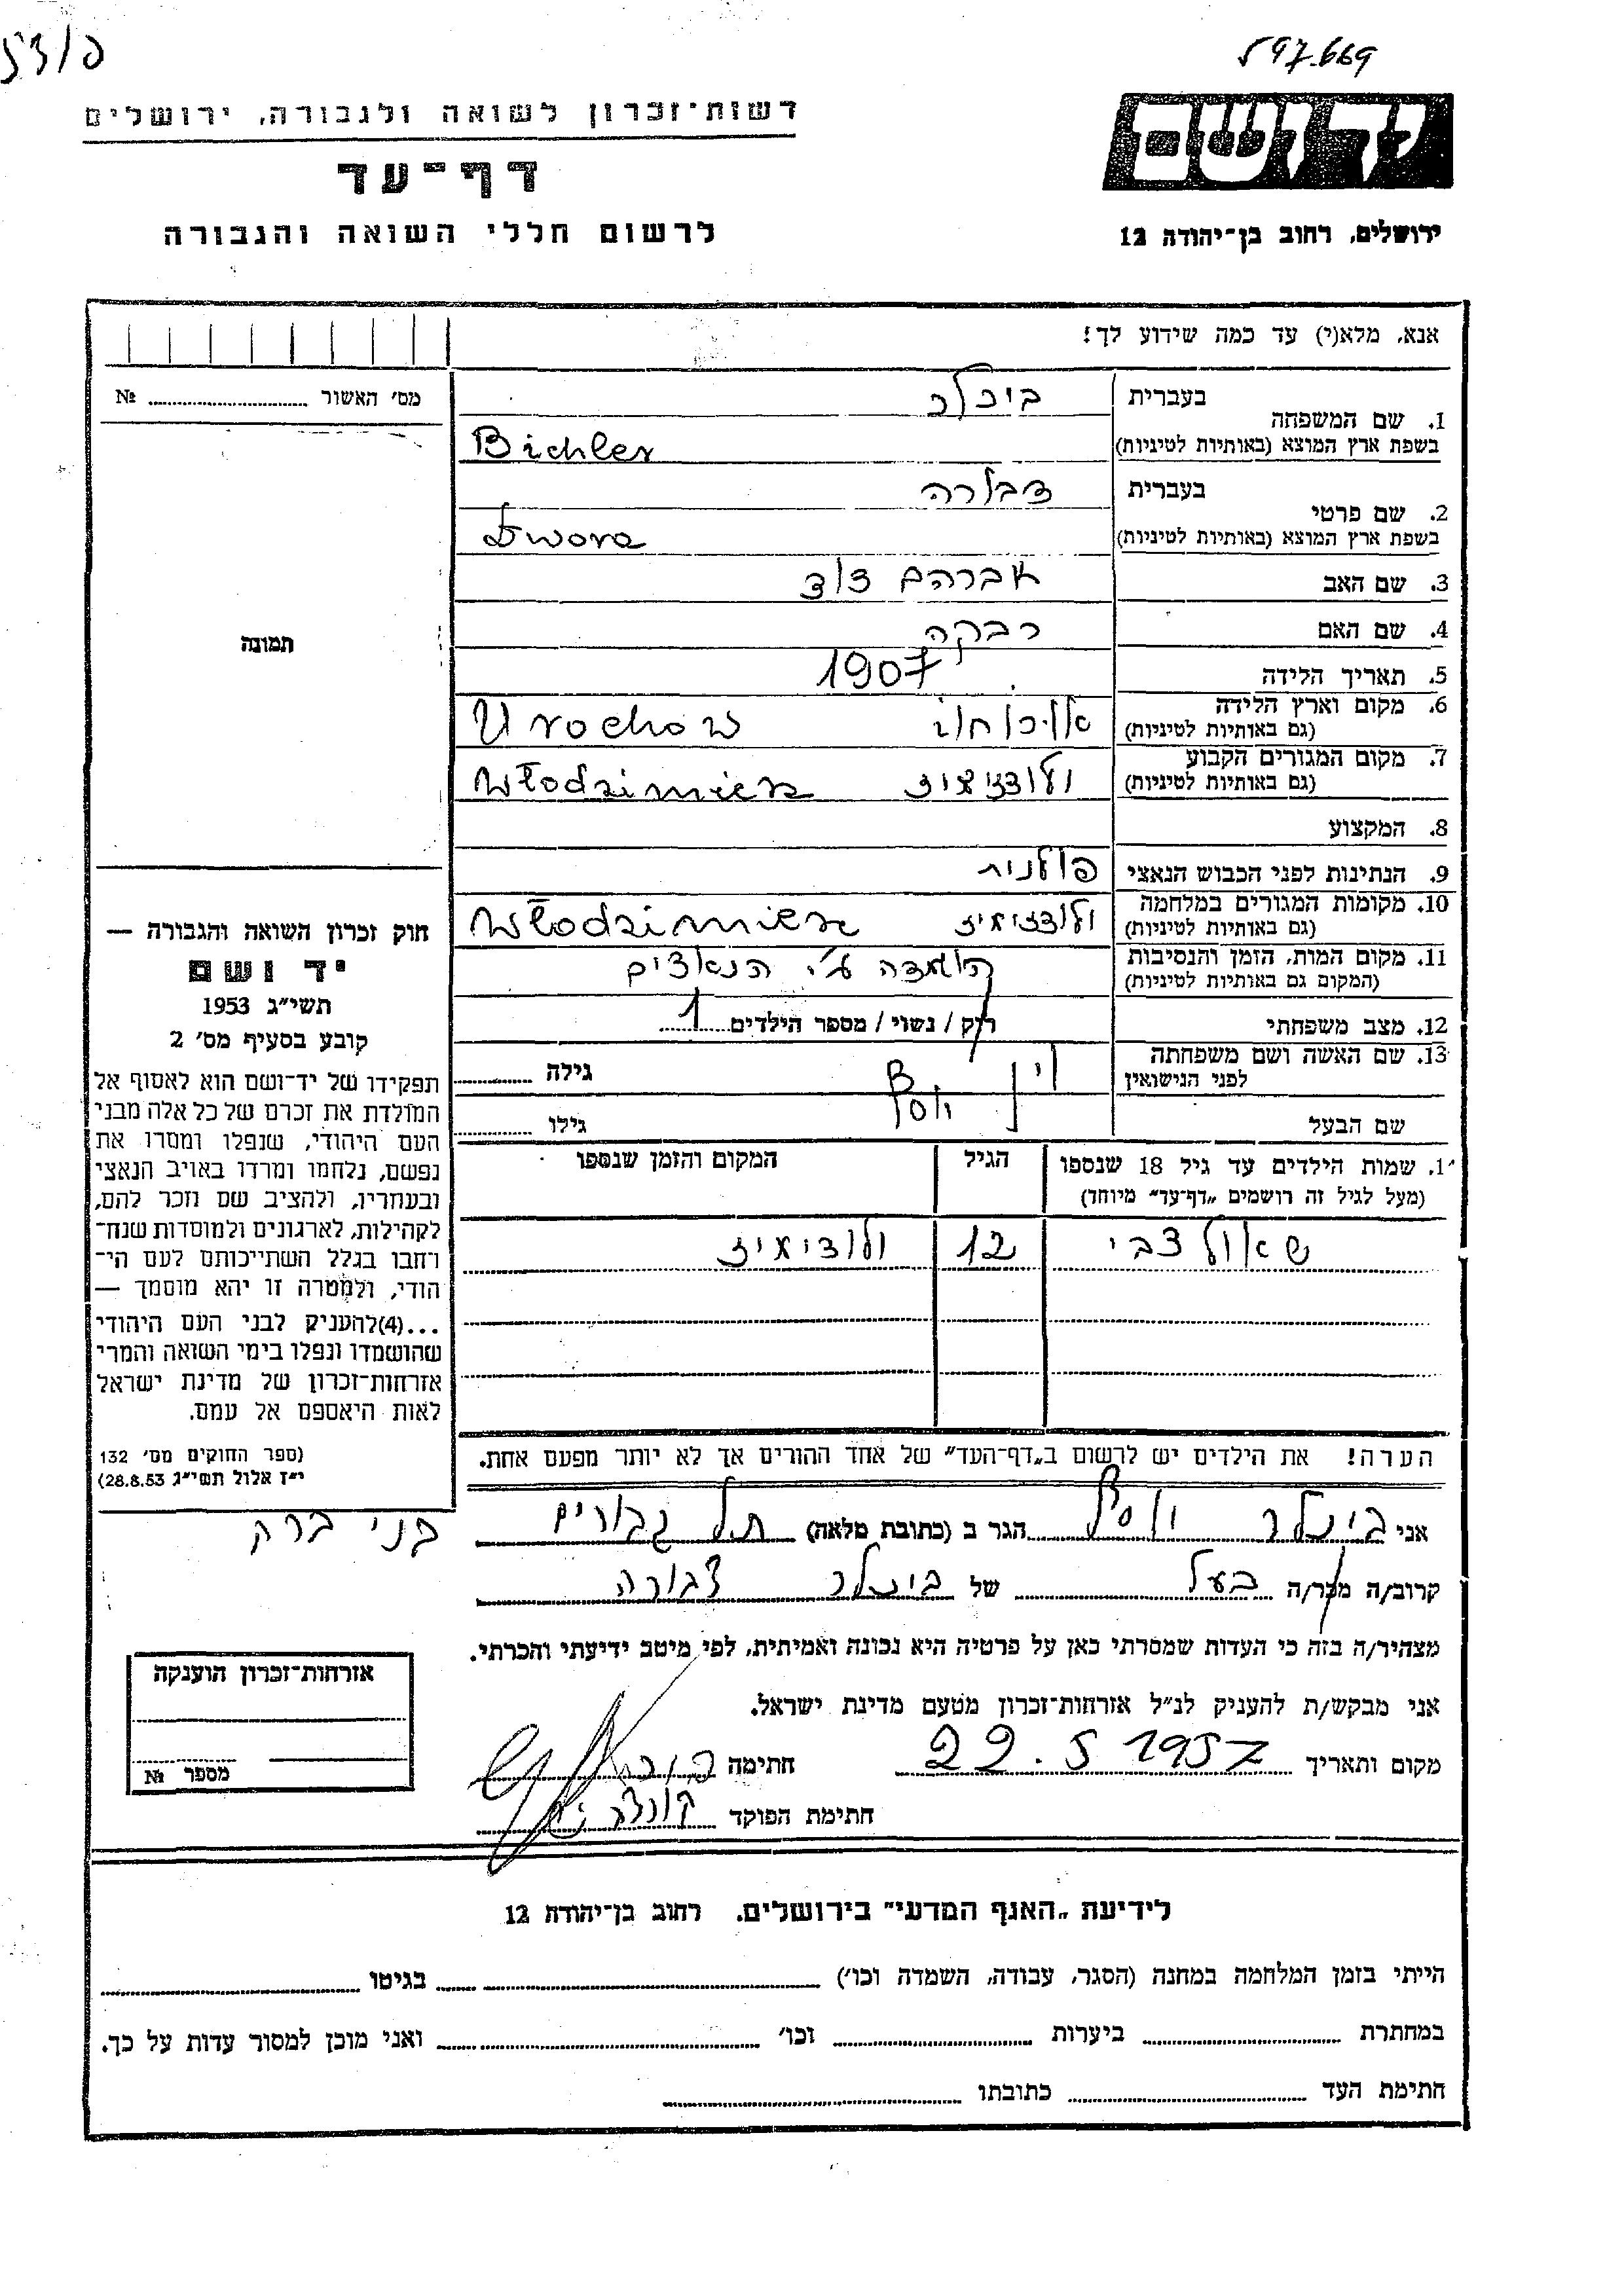 597.669
רשות־זכרון לשואה ולגבורה, ירושלים
דף־עד
לרשום חללי השואה והגבורה
ידושם
ירושלים, רחוב בן־יהודה 12
אנא, מלא(י) עד כמה שידוע לך!
מס׳ האשור №
תמונה
1. שם המשפחה
בעברית ביכלר
בשפת ארץ המוצא (באותיות לטיניות) Bichler
2. שם פרטי
בעברית דבורה
בשפת ארץ המוצא (באותיות לטיניות) Dwora
3. שם האב אברהם דוד
4. שם האם רבקה
5. תאריך הלידה 1907
6. מקום וארץ הלידה
(גם באותיות לטיניות) Urochow
7. מקום המגורים הקבוע
(גם באותיות לטיניות) Włodzimierz
8. המקצוע
9. הנתינות לפני הכבוש הנאצי פולנית
10. מקומות המגורים במלחמה
(גם באותיות לטיניות) Włodzimierz
11. מקום המות, הזמן והנסיבות הושמדה ע״י הנאצים
(המקום גם באותיות לטיניות)
12. מצב משפחתי רוק / נשוי / מספר הילדים 1
13. שם האשה ושם משפחתה
לפני הנישואין גילה
שם הבעל יוסף גילו
שמות הילדים עד גיל 18 שנספו הגיל המקום והזמן שנספו
(מעל לגיל זה רושמים „דף־עד״ מיוחד)
שאול צבי 12
הערה! את הילדים יש לרשום ב„דף־העד״ של אחד ההורים אך לא יותר מפעם אחת.
חוק זכרון השואה והגבורה —
יד ושם
תשי״ג 1953
קובע בסעיף מס׳ 2
תפקידו של יד־ושם הוא לאסוף אל
המולדת את זכרם של כל אלה מבני
העם היהודי, שנפלו ומסרו את
נפשם, נלחמו ומרדו באויב הנאצי
ובעוזריו, ולהציב שם וזכר להם,
לקהילות, לארגונים ולמוסדות שנח־
רחבו בגלל השתייכותם לעם הי־
הודי, ולמטרה זו יהא מוסמך —
...(4)להעניק לבני העם היהודי
שהושמדו ונפלו בימי השואה והמרי
אזרחות־זכרון של מדינת ישראל
לאות היאספם אל עמם.
(ספר החוקים מס׳ 132
י״ז אלול תשי״ג 28.8.53)
אני ביכלר יוסף הגר ב (כתובת מלאה) תל גבורים
בני ברק
קרוב/ה מכר/ה בעל של ביכלר דבורה
מצהיר/ה בזה כי העדות שמסרתי כאן על פרטיה היא נכונה ואמיתית, לפי מיטב ידיעתי והכרתי.
אני מבקש/ת להעניק לנ״ל אזרחות־זכרון מטעם מדינת ישראל.
מקום ותאריך 22.5 1957 חתימה
חתימת הפוקד
אזרחות־זכרון הוענקה
מספר №
לידיעת „האגף המדעי״ בירושלים. רחוב בן־יהודה 12
הייתי בזמן המלחמה במחנה (הסגר, עבודה, השמדה וכו׳) בגיטו
במחתרת ביערות וכו׳ ואני מוכן למסור עדות על כך.
חתימת העד כתובתו